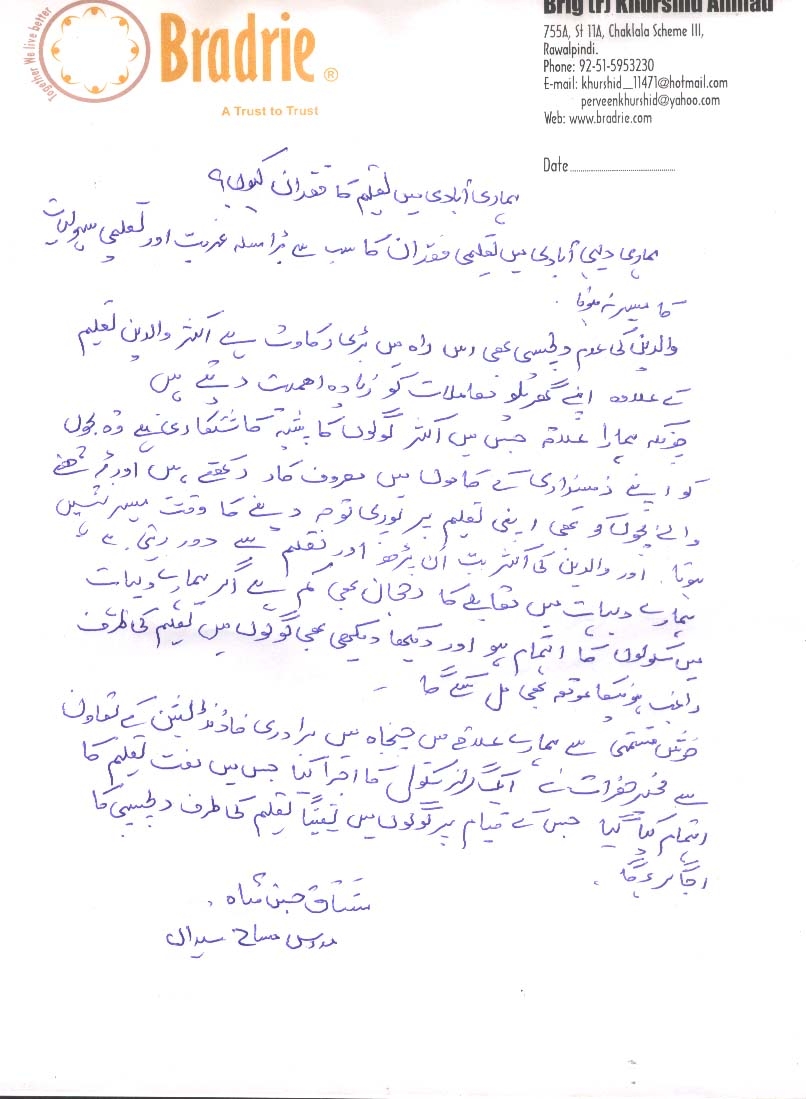 Together We live better
Bradrie®
A Trust to Trust
Brig (r) Khurshid Ahmad
755A, St 11A, Chaklala Scheme III,
Rawalpindi.
Phone: 92-51-5953230
E-mail: khurshid_11471@hotmail.com
perveenkhurshid@yahoo.com
Web: www.bradrie.com
Date
ہماری آبادی میں تعلیم کا فقدان کیوں؟
ہماری دیہی آبادی میں تعلیمی فقدان کا سب سے بڑا مسلہ غربت اور تعلیمی سہولیات
کا میسر نہ ہونا.
والدین کی عدم دلچسپی بھی اس راہ میں بڑی رکاوٹ ہے اکثر والدین تعلیم
کے علاوہ اپنے گھریلو معاملات کو زیادہ اھمیت دیتے ہیں
چونکہ ہمارا علاقہ جس میں اکثر لوگوں کا پیشہ کاشتکاری ہے وہ بچوں
کو اپنے زمینداری کے کاموں میں مصروف کار رکھتے ہیں اور پڑھنے
والے بچوں کو بھی اپنی تعلیم پر پوری توجہ دینے کا وقت میسر نہیں
ہوتا. اور والدین کی اکثریت ان پڑھ اور تعلیم سے دور رہتی ہے
ہمارے دیہات میں مقابلے کا رجحان بھی کم ہے اگر ہمارے دیہات
میں سکولوں کا اہتمام ہو اور دیکھا دیکھی بھی لوگوں میں تعلیم کی طرف
راغب ہونیکا موقعہ بھی مل سکے گا
خوش قسمتی سے ہمارے علاقے میں برادری فاونڈیشن کے تعاون
سے مخیر حضرات نے ایک گرلز سکول کا اجرا کیا جس میں مفت تعلیم کا
اہتمام کیا گیا جس کے قیام پر لوگوں میں یقینًا تعلیم کی طرف دلچسپی کا
مشتاق حسین شاہ.
مدرس سیداں